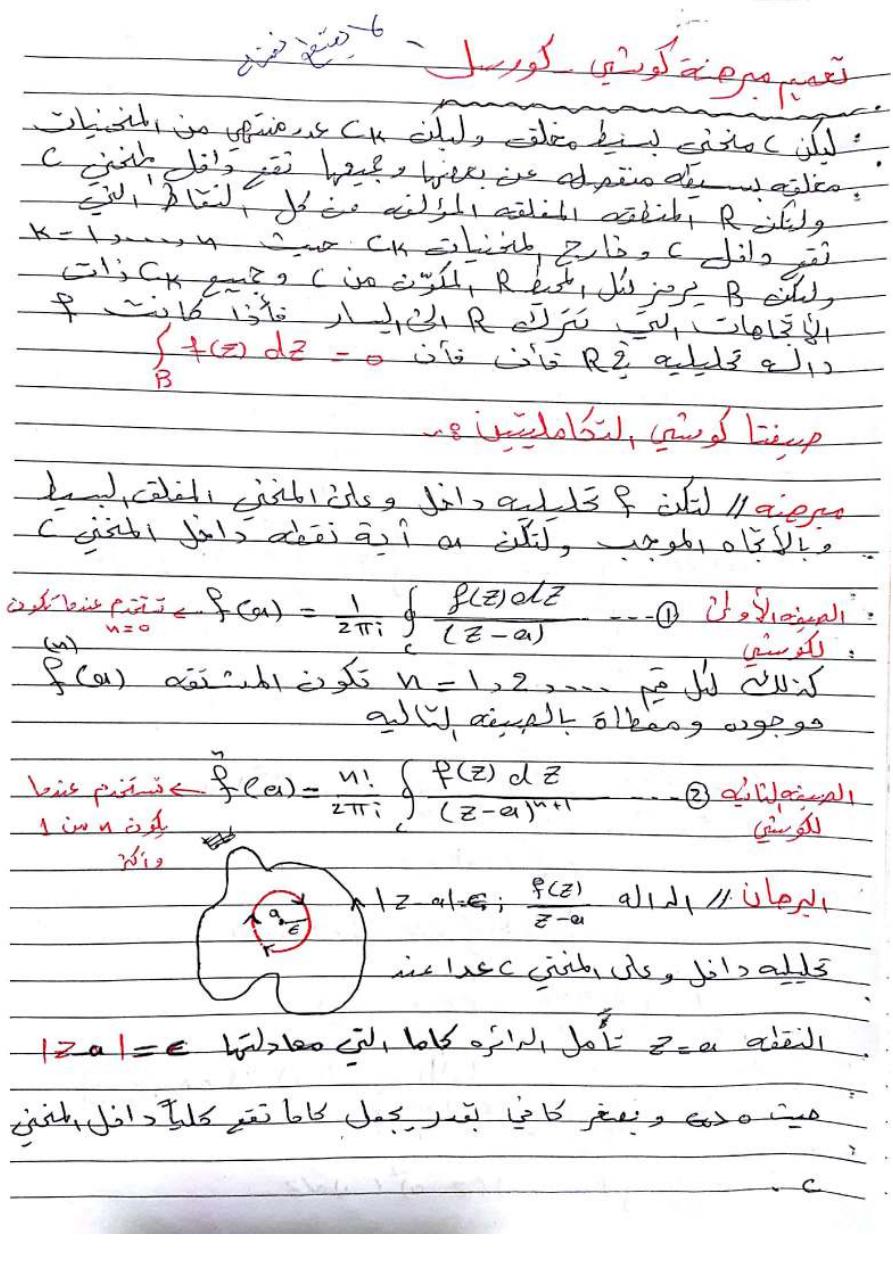 تعميم مبرهنة كوشي - كورسل
ليكن C منحني بسيط مغلق وليكن CK عدد منتهي من المنحنيات
مغلقه بسيطه منفصله عن بعضها وجميعها تقع داخل المنحني C
ولتكن R المنطقه المغلقه المؤلفه من كل النقاط التي
تقع داخل C وخارج المنحنيات CK حيث K=1,.....,n
وليكن B يرمز لكل المحيط R المكون من C وجميع CK ذات
الأتجاهات التي تترك R الى اليسار فأذا كانت f
داله تحليليه في R فأن فأن ∫_B f(z) dz = 0
صيغتا كوشي التكامليتين :-
مبرهنه // لتكن f تحليليه داخل وعلى المنحني المغلق البسيط
وبالأتجاه الموجب ولتكن a أية نقطه داخل المنحني C
الصيغه الأولى لكوشي ①---- f(a) = 1/2πi ∮_c f(z)dz/(z-a) ← تستخدم عندما تكون n=0
كذلك لكل قيم n=1,2,.... تكون المشتقه f^(n)(a)
موجوده ومعطاة بالصيغه التاليه
الصيغه الثانيه لكوشي ②---- f^n(a) = n!/2πi ∮_c f(z) dz/(z-a)^n+1 ← تستخدم عندما يكون n من 1 واكثر
البرهان // الداله f(z)/z-a ; |z-a|=ϵ
a ϵ
تحليليه داخل وعلى المنحني C عدا عند
النقطه z=a تأمل الدائره كاما التي معادلتها |z a|=ϵ
حيث ϵ>0 وبصغر كافي بقدر يجعل كاما تقع كلياً داخل المنحني
C .